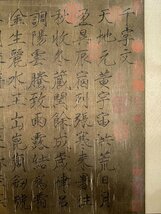 千字文
天地元黃宇宙洪荒日月
盈昃辰宿列張寒來暑往
秋收冬藏閏餘成歲律呂
調陽雲騰致雨露結為霜
金生麗水玉出崑岡劍號